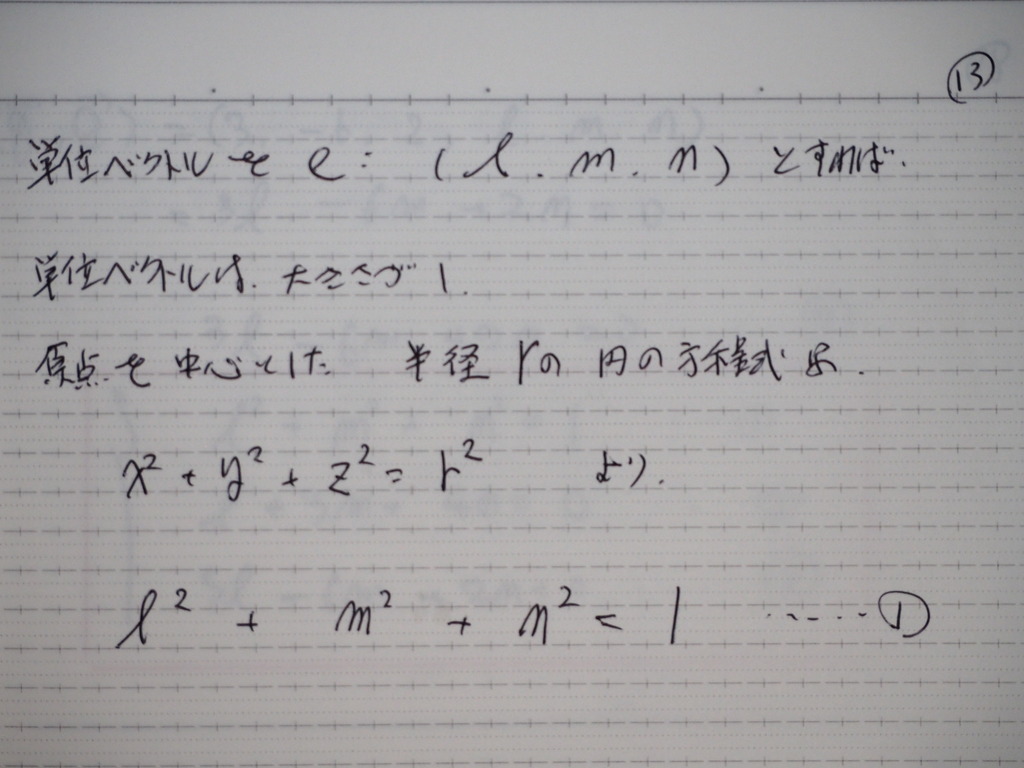 ⑬
単位ベクトルを e = (l, m, n) とすれば、
単位ベクトルは、大きさが 1.
原点を中心とした 半径 rの 円の方程式は、
x² + y² + z² = r² より、
l² + m² + n² = 1 ‥‥‥ ①